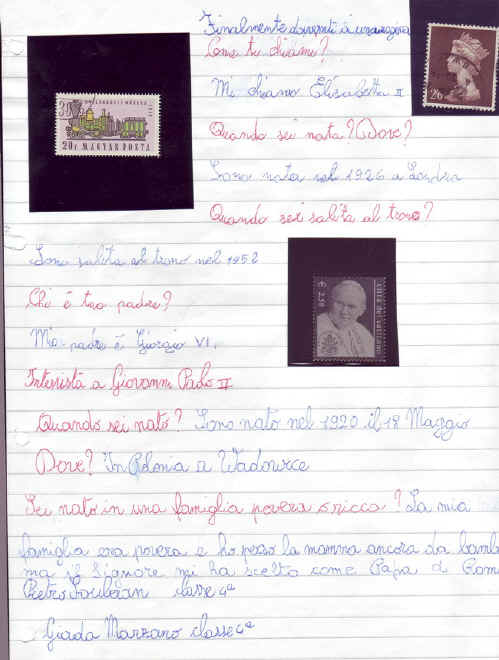 Finalmente diventò una regina
Come ti chiami?
Mi chiamo Elisabetta II
Quando sei nata? Dove?
Sono nata nel 1926 a Londra
Quando sei salita al trono?
Sono salita al trono nel 1952
Chi è tuo padre?
Mio padre è Giorgio VI.
Intervista a Giovanni Paolo II
Quando sei nato? Sono nato nel 1920 il 18 Maggio
Dove? In Polonia a Wadowice
Sei nato in una famiglia povera o ricca? La mia
famiglia era povera e ho perso la mamma ancora da bamb
ma il Signore mi ha scelto come Papa di Rom
Pietro classe 4ª
Giada Marzano classe 4ª
20f MAGYAR POSTA
2/6
€ 2,50
CITTÀ DEL VATICANO